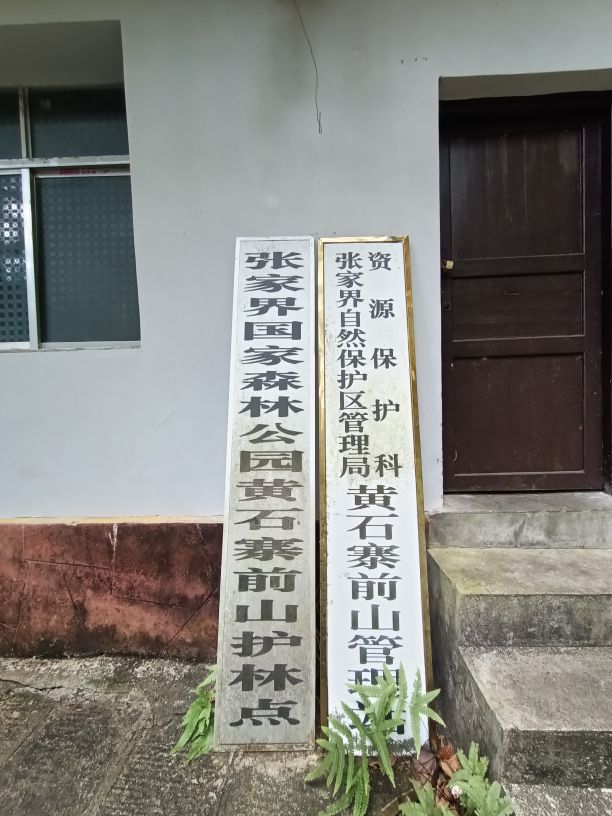 张家界国家森林公园黄石寨前山护林点
张家界自然保护区管理局
资源保护科
黄石寨前山管理站